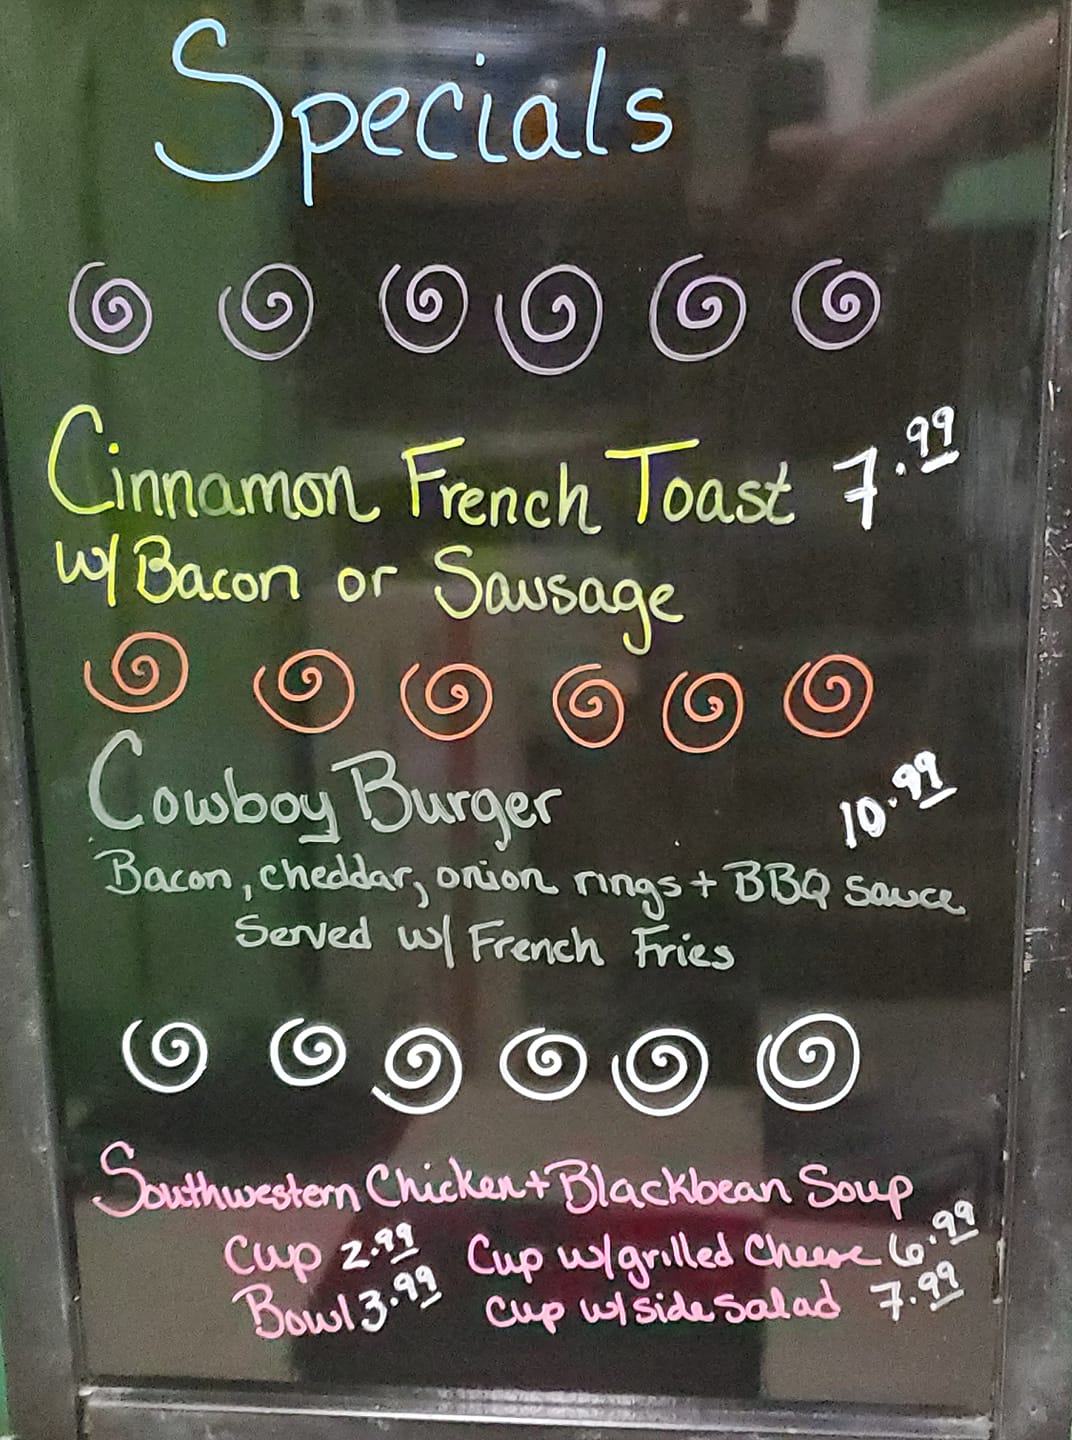 Specials
Cinnamon French Toast 7.99
w/ Bacon or Sausage
Cowboy Burger 10.99
Bacon, cheddar, onion rings + BBQ sauce
Served w/ French Fries
Southwestern Chicken + Blackbean Soup
Cup 2.99 Cup w/ grilled Cheese 6.99
Bowl 3.99 Cup w/ side salad 7.99